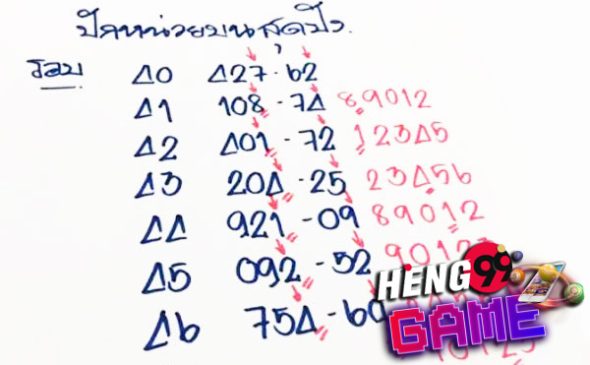 ปักหน่วยบนสุดปัง.
รอบ 40 427-62
41 108-74 89012
42 401-72 12345
43 204-25 23456
44 921-09 89012
45 092-52
46 754-
HENG99
GAME